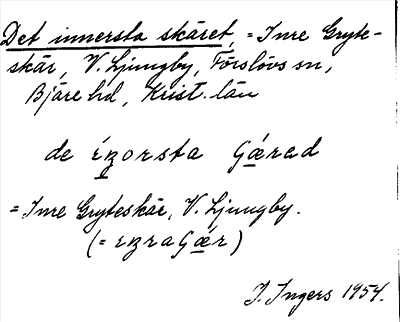 Det innersta skäret, = Inre Gryte-
skär, V. Ljungby, Förslövs sn,
Bjäre hd, Krist. län
de ínorsta Gǽrad
= Inre Gryteskär, V. Ljungby.
(= enraGǽr)
I. Ingers 1954.